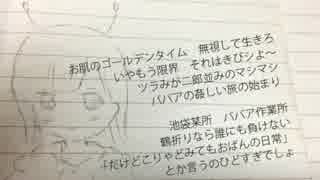 お肌のゴールデンタイム　無視して生きろ
いやもう限界　それはきびシよ～
ツラみが二郎並みのマシマシ
ババアの姦しい旅の始まり
池袋某所　ババア作業所
鶴折りなら誰にも負けない
「だけどこりゃどみてもおばんの日常」
とか言うのひどすぎでしょ